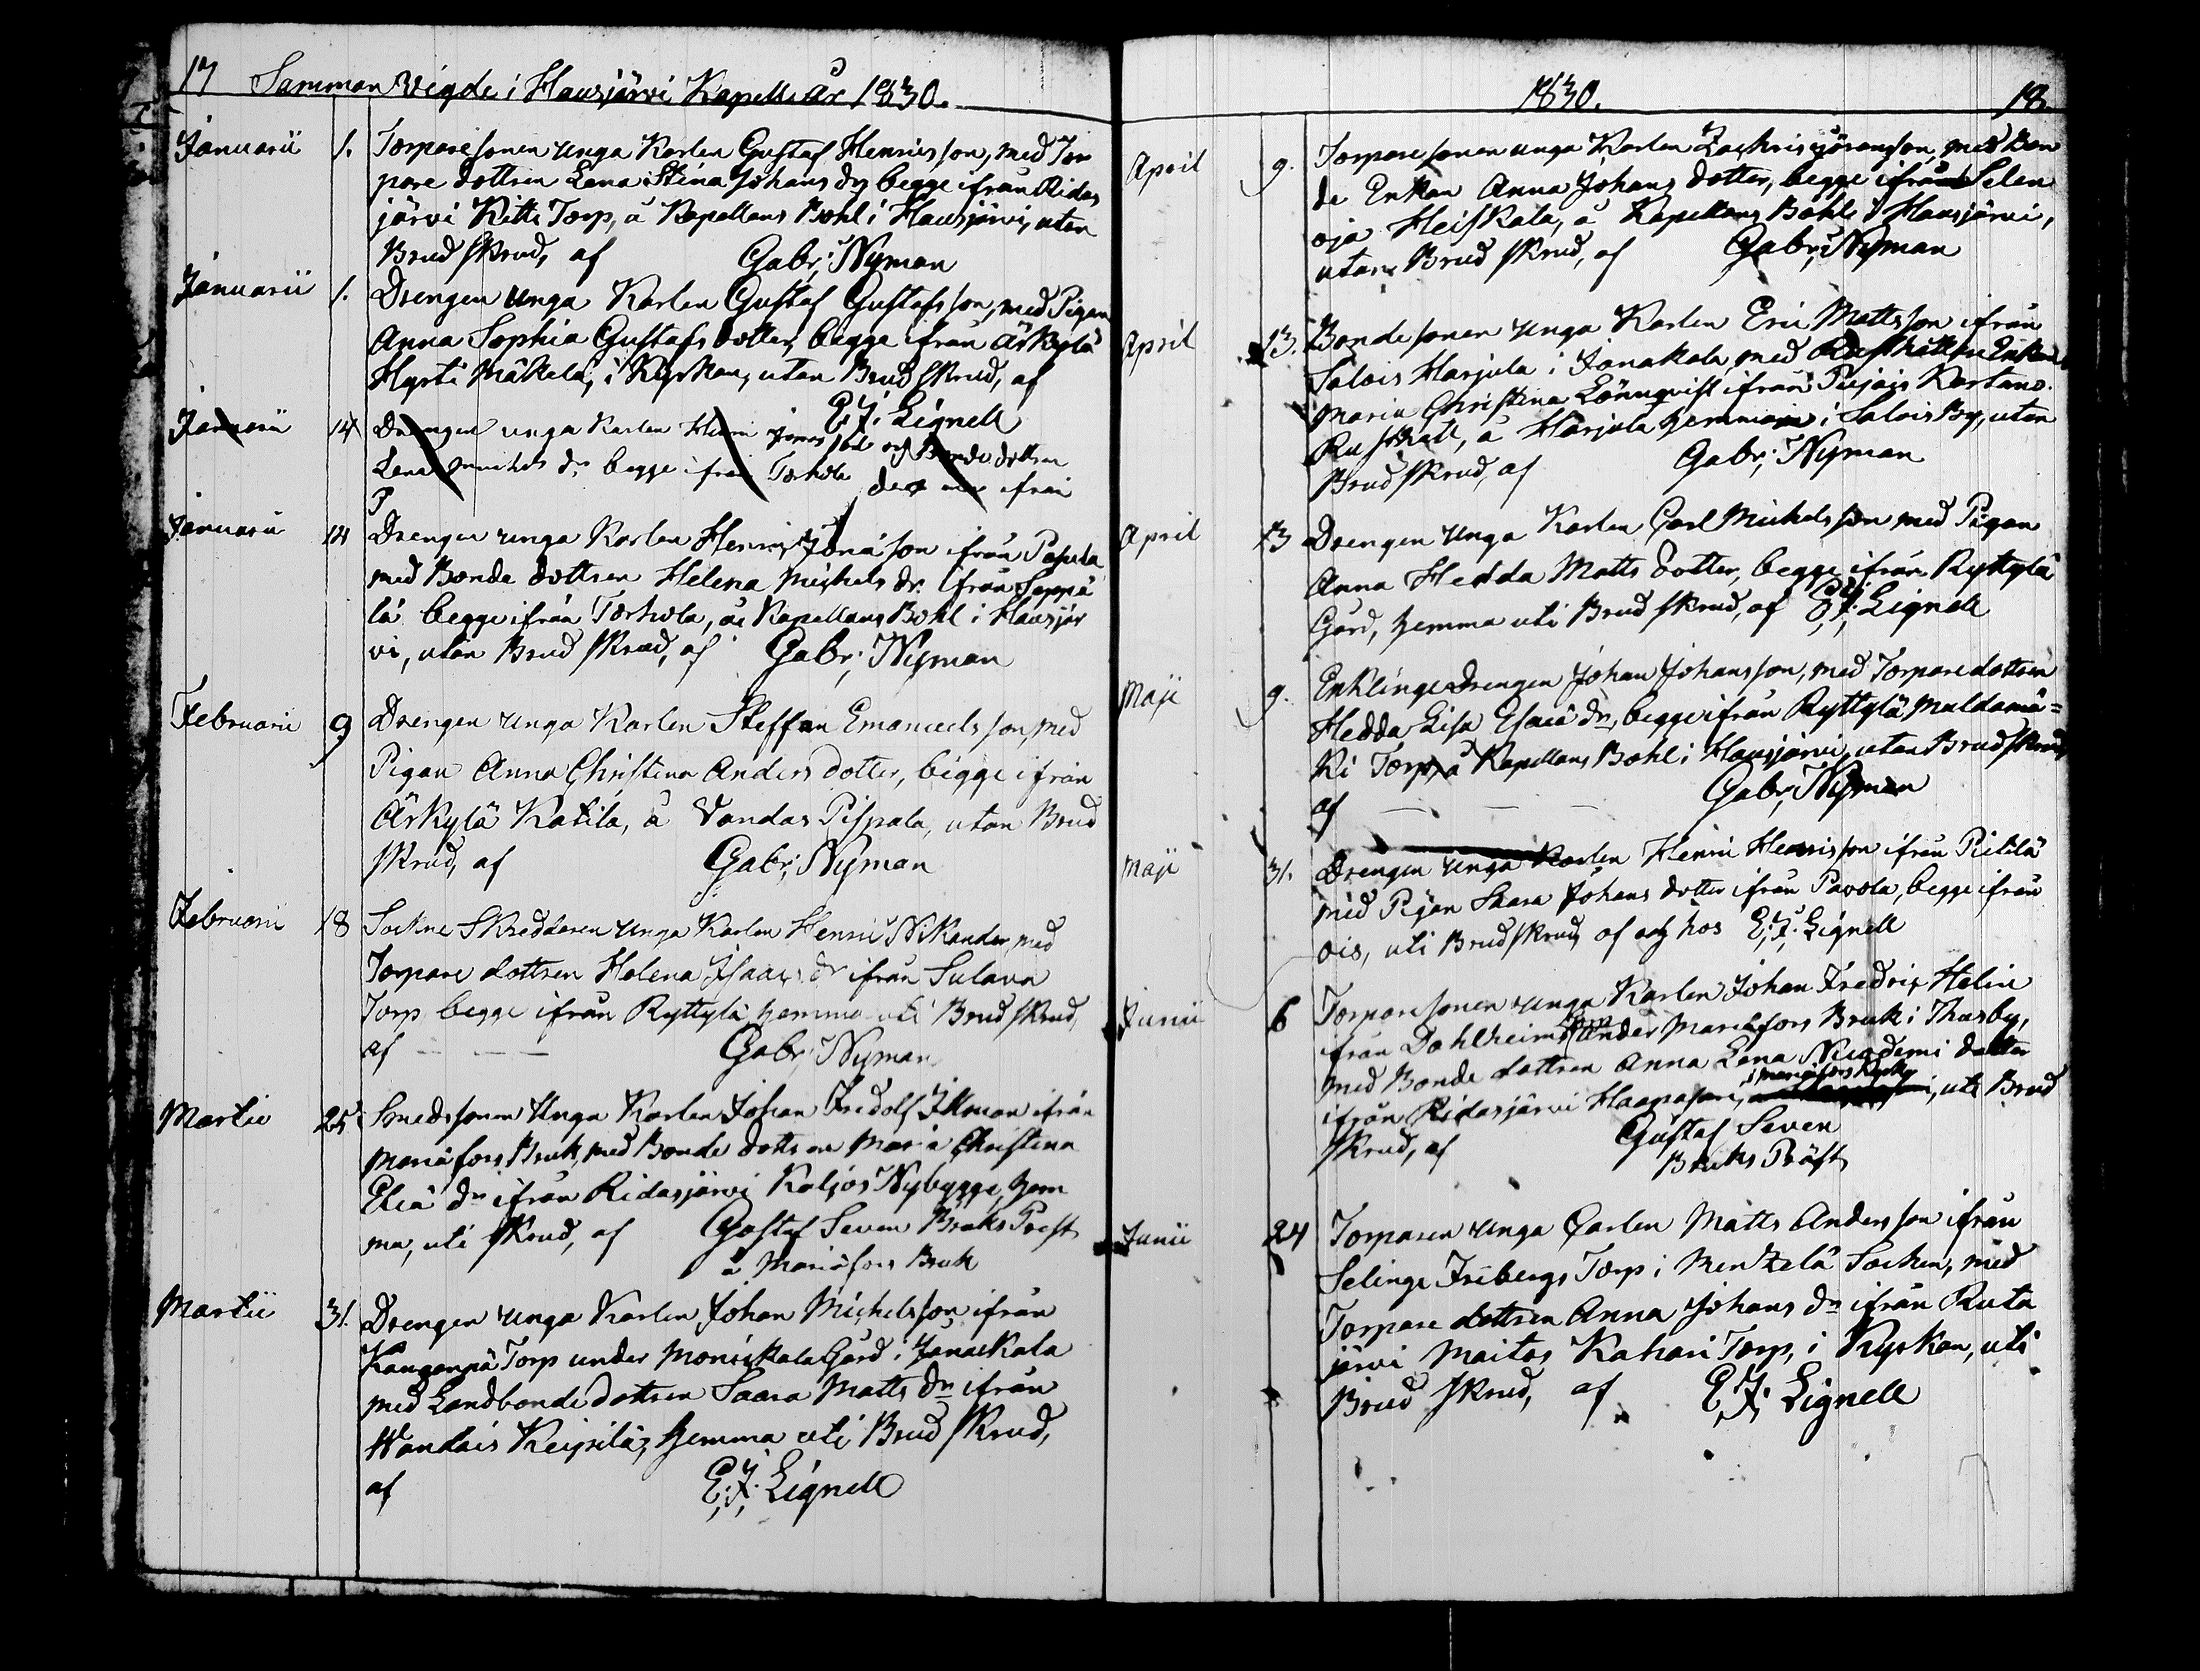 17 Samman Vigde i Hausjärvi Kapell År 1830.
Januarii 1. Torparesonen unga Karlen Gustaf Henricsson, med Tor
pare dottren Lena Stina Johans dr begge ifrån Ridas
järvi Kitti Torp, å Kapellans Bohl i Hausjärvi, utan
Brud skrud, af Gabr; Nyman
Januarii 1. Drengen unga Karlen Gustaf Gustafsson, med Pigan
Anna Sophia Gustafs dotter, begge ifrån Ärkylä
Hyrti Mäkelä, i Kyrkan, utan Brud skrud, af
E. J. Lignell
Januarii 14 Drengen unga Karlen Henri Jonas son och Bonde dottren
Lena Michels dr begge ifrån Torhola ifrån
P
Januarii 14 Drengen unga Karlen Henric Jonasson ifrån Papula
med Bonde dottren Helena Michels dr. ifrån Seppä
lä begge ifrån Torhola, å Kapellans Bohl i Hausjär
vi, utan Brud skrud, af Gabr; Nyman
Februarii 9 Drengen unga Karlen Steffan Emanuelsson, med
Pigan Anna Christina Anders dotter, begge ifrån
Ärkylä Katila, å Vandas Pispala, utan Brud
skrud, af Gabr; Nyman
Februarii 18 Sockne Skreddaren unga Karlen Henric Nikander, med
Torpare dottren Helena Isaacs dr ifrån Sulava
Torp begge ifrån Ryttylä hemma uti Brud skrud,
af - - - Gabr; Nyman
Martii 25 Smedssonen Unga Karlen Johan Fredolf Illman ifrån
Mariæfors Bruk, med Bonde dottren Maria Christina
Eliæ dr ifrån Ridasjärvi Kaljos Nybygge, hem
ma, uti skrud, af Gustaf Seven Bruks Prest
å Mariæfors Bruk
Martii 31. Drengen unga Karlen Johan Michelsson ifrån
Kanganpä Torp under Monickala Gård i Janackala
med Landbonde dottren Saara Matts dr ifrån
Wandais Keipilä, hemma uti Brud skrud,
af E. J. Lignell
1830. 18
April 9. Torparesonen unga Karlen Zachris Jöransson, med Bon
de Enkan Anna Johans dotter, begge ifrån Selen
oja Heiskala, å Kapellans Bohl i Hausjärvi,
utan Brud skrud, af Gabr; Nyman
April 13. Bondesonen unga Karlen Eric Mattsson ifrån
Salois Harjula i Janakala, med Rusthållare Enkan
Maria Christina Lönnqvist ifrån Pujois Kartano
Rusthåll, å Harjula hemman i Salois By, utan
Brud skrud, af Gabr; Nyman
April 13 Drengen unga Karlen Carl Michelsson med Pigan
Anna Hedda Matts dotter, begge ifrån Ryttylä
Gård, hemma uti Brud skrud, af E. J. Lignell
Maji 9. Enklinge Drengen Johan Johansson, med Torparedottren
Hedda Lisa Esaiæ dr, begge ifrån Ryttylä Muldamä=
ki Torp, å Kapellans Bohl i Hausjärvi, utan Brud skrud,
af - - - Gabr; Nyman
Maji 31. Drengen unga Karlen Henric Henricsson ifrån Pietilä
med Pigan Saara Johans dotter ifrån Pavola, begge ifrån
Ois, uti Brud skrud, af och hos E. J. Lignell
Junii 6 Torparesonen unga Karlen Johan Fredric Helin
ifrån Dahlheims Torp under Mariæfors Bruk i Thusby,
med Bonde dottren Anna Lena Nicodemi dotter
ifrån Ridasjärvi Haapasari, i Mariæfors Kyrka, uti Brud
skrud, af Gustaf Seven
Bruks Präst
Junii 24 Torparen unga Carlen Matts Andersson ifrån
Selinge Fribergs Torp i Mentzelä Socken, med
Torpare dottren Anna Johans dr ifrån Ruta
järvi Maitos Kahari Torp, i Kyrkan, uti
Brud skrud, af E. J. Lignell